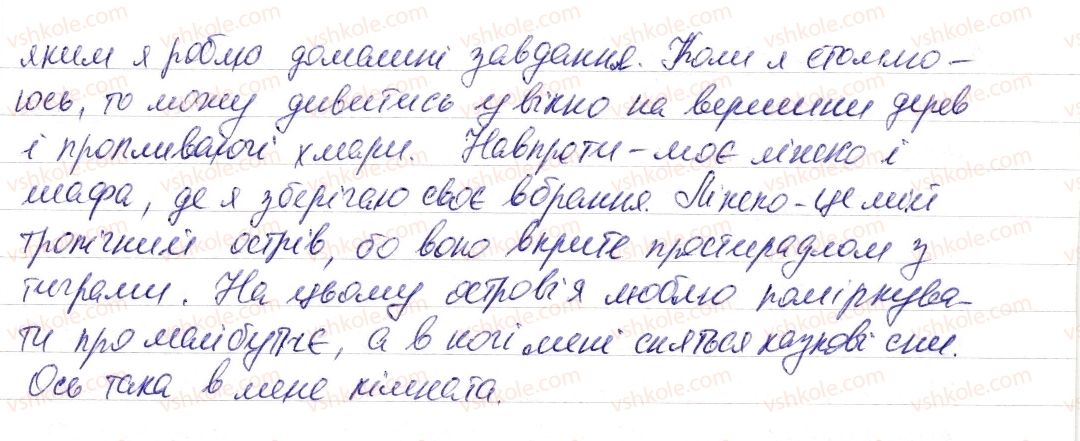 яким я роблю домашні завдання. Коли я стомлю-
юсь, то можу дивитись у вікно на вершини дерев
і пропливаючі хмари. Навпроти – моє ліжко і
шафа, де я зберігаю своє вбрання. Ліжко – це мій
тропічний острів, бо воно вкрите простирадлом з
тиграми. На цьому острові я люблю поміркува-
ти про майбутнє, а вночі мені сняться казкові сни.
Ось така в мене кімната.